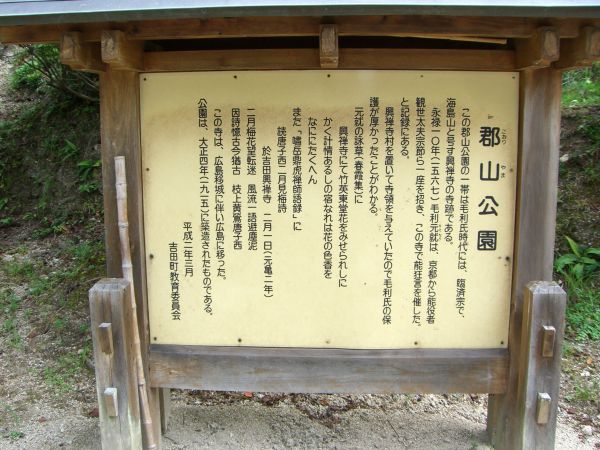 郡山公園
こおり やま
この郡山公園の一帯は毛利氏時代には、臨済宗で、
海島山と号す興禅寺の寺跡である。
永禄一〇年(一五六七)毛利元就は、京都から能役者
観世太夫宗節ら一座を招き、この寺で能狂言を催した。
と記録にある。
興禅寺村を置いて寺領を与えていたので毛利氏の保
護が厚かったことがわかる。
元就の詠草(春霞集)に
興禅寺にて竹英東堂花をみせられしに
かく計情あるしの宿なれは花の色香を
なににたくへん
また「嘯岳鼎虎禅師語録」に
読唐子西二月見梅詩
於吉田興禅寺 二月一日(元亀二年)
二月梅花望転迷 風流一語避塵泥
因詩憶古今猶古 枝上黄鶯唐子西
この寺は、広島移城に伴い広島に移った。
公園は、大正四年(一九一五)に築造されたものである。
平成二年三月
吉田町教育委員会